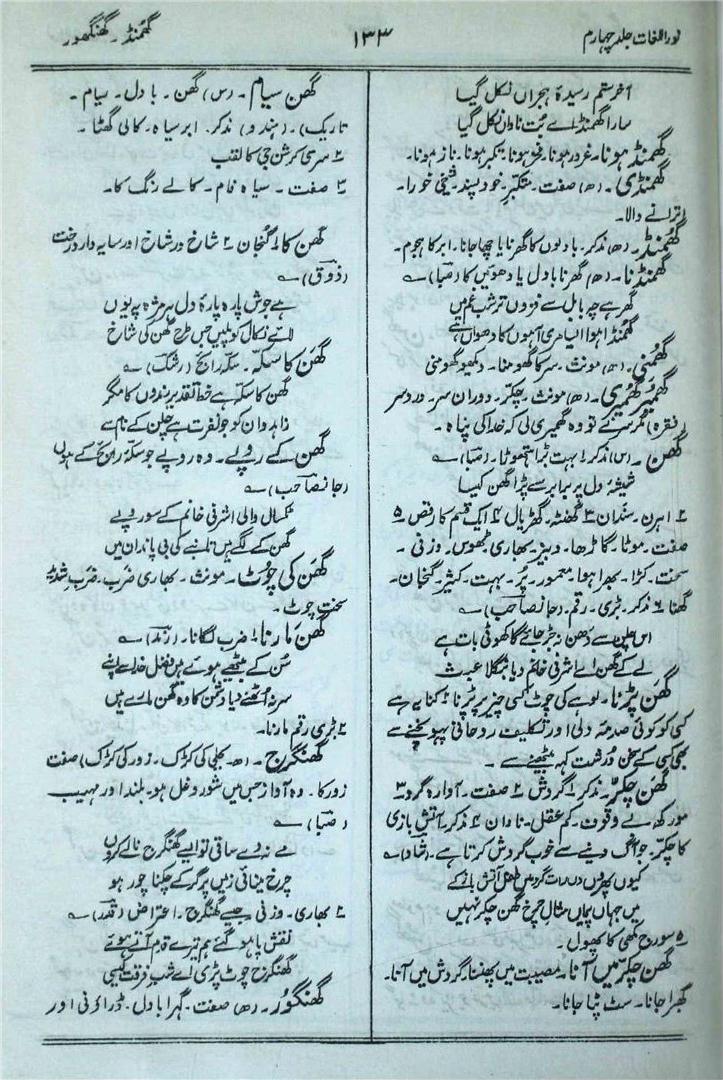 نور اللغات جلد چہارم
۱۳۳
گھمنڈ۔ گھنگھور
آخر ستم رسیدۂ ہجراں نکل گیا
سارا گھمنڈ اے بُت ناداں نکل گیا
گھمنڈ ہونا۔ غرور ہونا۔ فخر ہونا۔ تکبر ہونا۔ ناز ہونا۔
گھمنڈی۔ (ھ) صفت۔ متکبر۔ خود پسند۔ شیخی خورا۔
اِترانے والا۔
گھُمنڈ۔ (ھ) مذکر۔ بادلوں کا گھرنا یا چھا جانا۔ ابر کا ہجوم۔
گھمنڈنا۔ (ھ) گھرنا بادل یا دھوئیں کا (ضیا) ؎
گھر ہے چہ بابل سے فزوں تر شب غم میں
گھمنڈا ہوا ایسا مری آہوں کا دھواں ہے
گھُمنی۔ (ھ) مونث۔ سر کا گھومنا۔ دیکھو گھومنی
گھمیر گھمیری۔ (ھ) مونث۔ چکّر۔ دوران سر۔ درد سر
(فقرہ) تو وہ گھمیری لی کہ خدا کی پناہ۔
گھن۔ (س) مذکر ۱ بہت بڑا ہتھوڑا۔ (ضیا) ؎
شیشۂ دل پر برابر سے پڑا گھن کیسا
۲ اہرن۔ سندان ۳ گھنٹہ۔ گھڑیال ۴ ایک قسم کا رقص ۵
صفت۔ موٹا۔ گاڑھا۔ دبیز۔ بھاری ٹھوس۔ وزنی۔
سخت۔ کڑا۔ بھرا ہوا۔ معمور۔ پُر۔ بہت۔ کثیر۔ گنجان۔
گھنا ۶ مذکر۔ بڑی۔ رقم۔ (جانصاحب) ؎
اس چلن سے دَھن بجڑ جائے گا کھوٹی بات ہے
لے کے گھن اے اشرفی خانم دیا بنگلا عبث
گھن پڑنا۔ لوہے کی چوٹ کسی چیز پر پڑنا ۲ کنایہ ہے
کسی کو کوئی صدمۂ دلی اور تکلیف روحانی پہونچنے سے
بھی کسی کے سخن درشت کہہ بیٹھنے سے۔
گھن چکّر۔ مذکر ۱ گردش ۲ صفت۔ آوارہ گرد ۳
مورکھ بے وقوف۔ کم عقل۔ نادان ۴ مذکر۔ آتش بازی
کا چکّر۔ جو آگ دینے سے خوب گردش کرتا ہے۔ (شاد) ؎
کیوں پھروں دن رات گرد میں طفل آتش باز کے
میں جہاں پیما ں مثالِ چرخ گھن چکر نہیں
۵ سورج مکھی کا پھول۔
گھن چکّر میں آنا۔ مصیبت میں پھنسنا۔ گردش میں آنا۔
گھبرا جانا۔ سٹ پٹا جانا۔
گھن سیام۔ (س) گھن۔ بادل۔ سیام۔
تاریک)۔ (ہندو) مذکر۔ ابر سیاہ۔ کالی گھٹا۔
۲ سری کرشن جی کا لقب
۳ صفت۔ سیاہ فام۔ کالے رنگ کا۔
گھن کا۔ ۱ گنجان ۲ شاخ در شاخ اور سایہ دار درخت
(ذوق) ؎
ہے جوش پارہ پارۂ دل ہر مژہ پہ یوں
لائے نکال کونپلیں جس طرح گھن کی شاخ
گھن کا سکّہ۔ سکّۂ رائج (رشک) ؎
گھن کا سکّہ ہے خط تقدیر بندوں کا مگر
زاہدوان کو جو نفرت ہے چلن کے نام سے
گھن کے روپے۔ وہ روپے جو سکّۂ رائج کے ہوں
(جانصاحب) ؎
ٹکسال والی اشرفی خانم کے سو روپے
گھن کے لگے ہیں تانبے کی بی پاندان میں
گھن کی چوٹ۔ مونث۔ بھاری ضرب۔ ضربِ شدید
سخت چوٹ۔
گھن مارنا ۱ ضرب لگانا۔ (رند) ؎
سُن کے بیٹھے ہوئے ہیں فضل خدا سے اپنے
سر نہ اُٹھنے دیا دشمن کا وہ گھن مارے ہیں
۲ بڑی رقم مارنا۔
گھنگرج۔ (ھ۔ بجلی کی کڑک۔ زور کی کڑک) صفت
زور کا۔ وہ آواز جس میں شور و غل ہو۔ بلند اور مہیب
(ضیا) ؎
مے نہ دے ساقی تو ایسے گھنگرج نالے کروں
چرخ مینائی زمیں پر گر کے چکنا چور ہو
۲ بھاری۔ وزنی جیسے گھنگرج۔ اعتراض (قدر) ؎
نقش پا ہو گئے ہم تیرے قدم آتے ہوئے
گھنگرج چوٹ پڑی اے شب فرقت کیسی
گھنگور۔ (ھ) صفت۔ گہرا بادل۔ ڈراؤنی اور